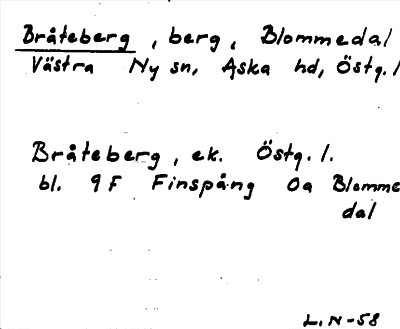 Bråteberg, berg, Blommedal
Västra Ny sn, Aska hd, Östg. l
Bråteberg, ek. Östg. l.
bl. 9F Finspång 0a Blomme
dal
L. N-58